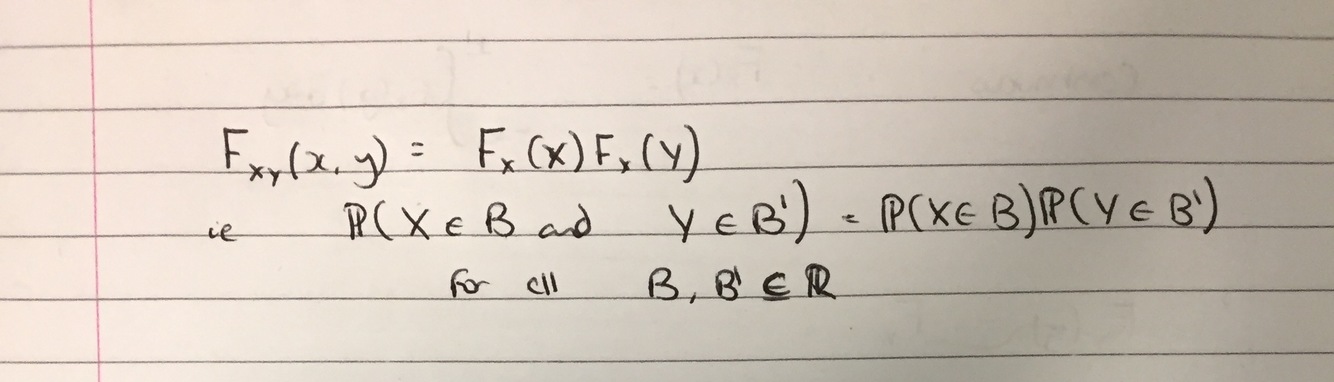 F_{XY}(x, y) = F_X(X) F_X(Y)
ie ℙ(X ∈ B and Y ∈ B') = ℙ(X ∈ B)ℙ(Y ∈ B')
for all B, B' ∈ ℝ